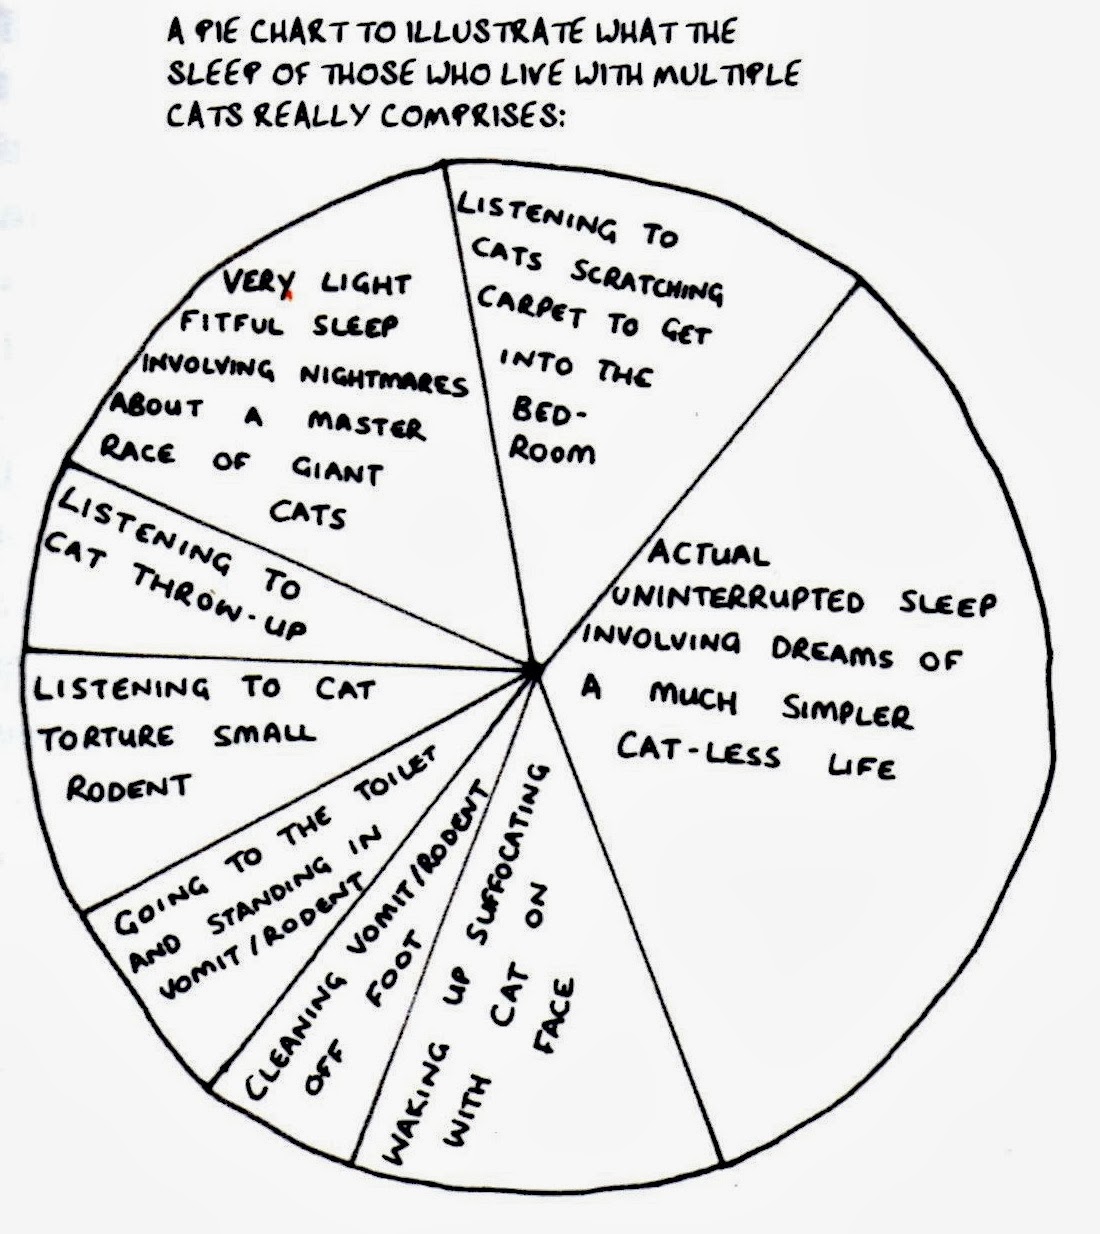 A PIE CHART TO ILLUSTRATE WHAT THE
SLEEP OF THOSE WHO LIVE WITH MULTIPLE
CATS REALLY COMPRISES:
LISTENING TO
CATS SCRATCHING
CARPET TO GET
INTO THE
BED-
ROOM
ACTUAL
UNINTERRUPTED SLEEP
INVOLVING DREAMS OF
A MUCH SIMPLER
CAT-LESS LIFE
WAKING UP SUFFOCATING
WITH CAT ON
FACE
CLEANING VOMIT/RODENT
OFF FOOT
GOING TO THE TOILET
AND STANDING IN
VOMIT/RODENT
LISTENING TO CAT
TORTURE SMALL
RODENT
LISTENING TO
CAT THROW-UP
VERY LIGHT
FITFUL SLEEP
INVOLVING NIGHTMARES
ABOUT A MASTER
RACE OF GIANT
CATS